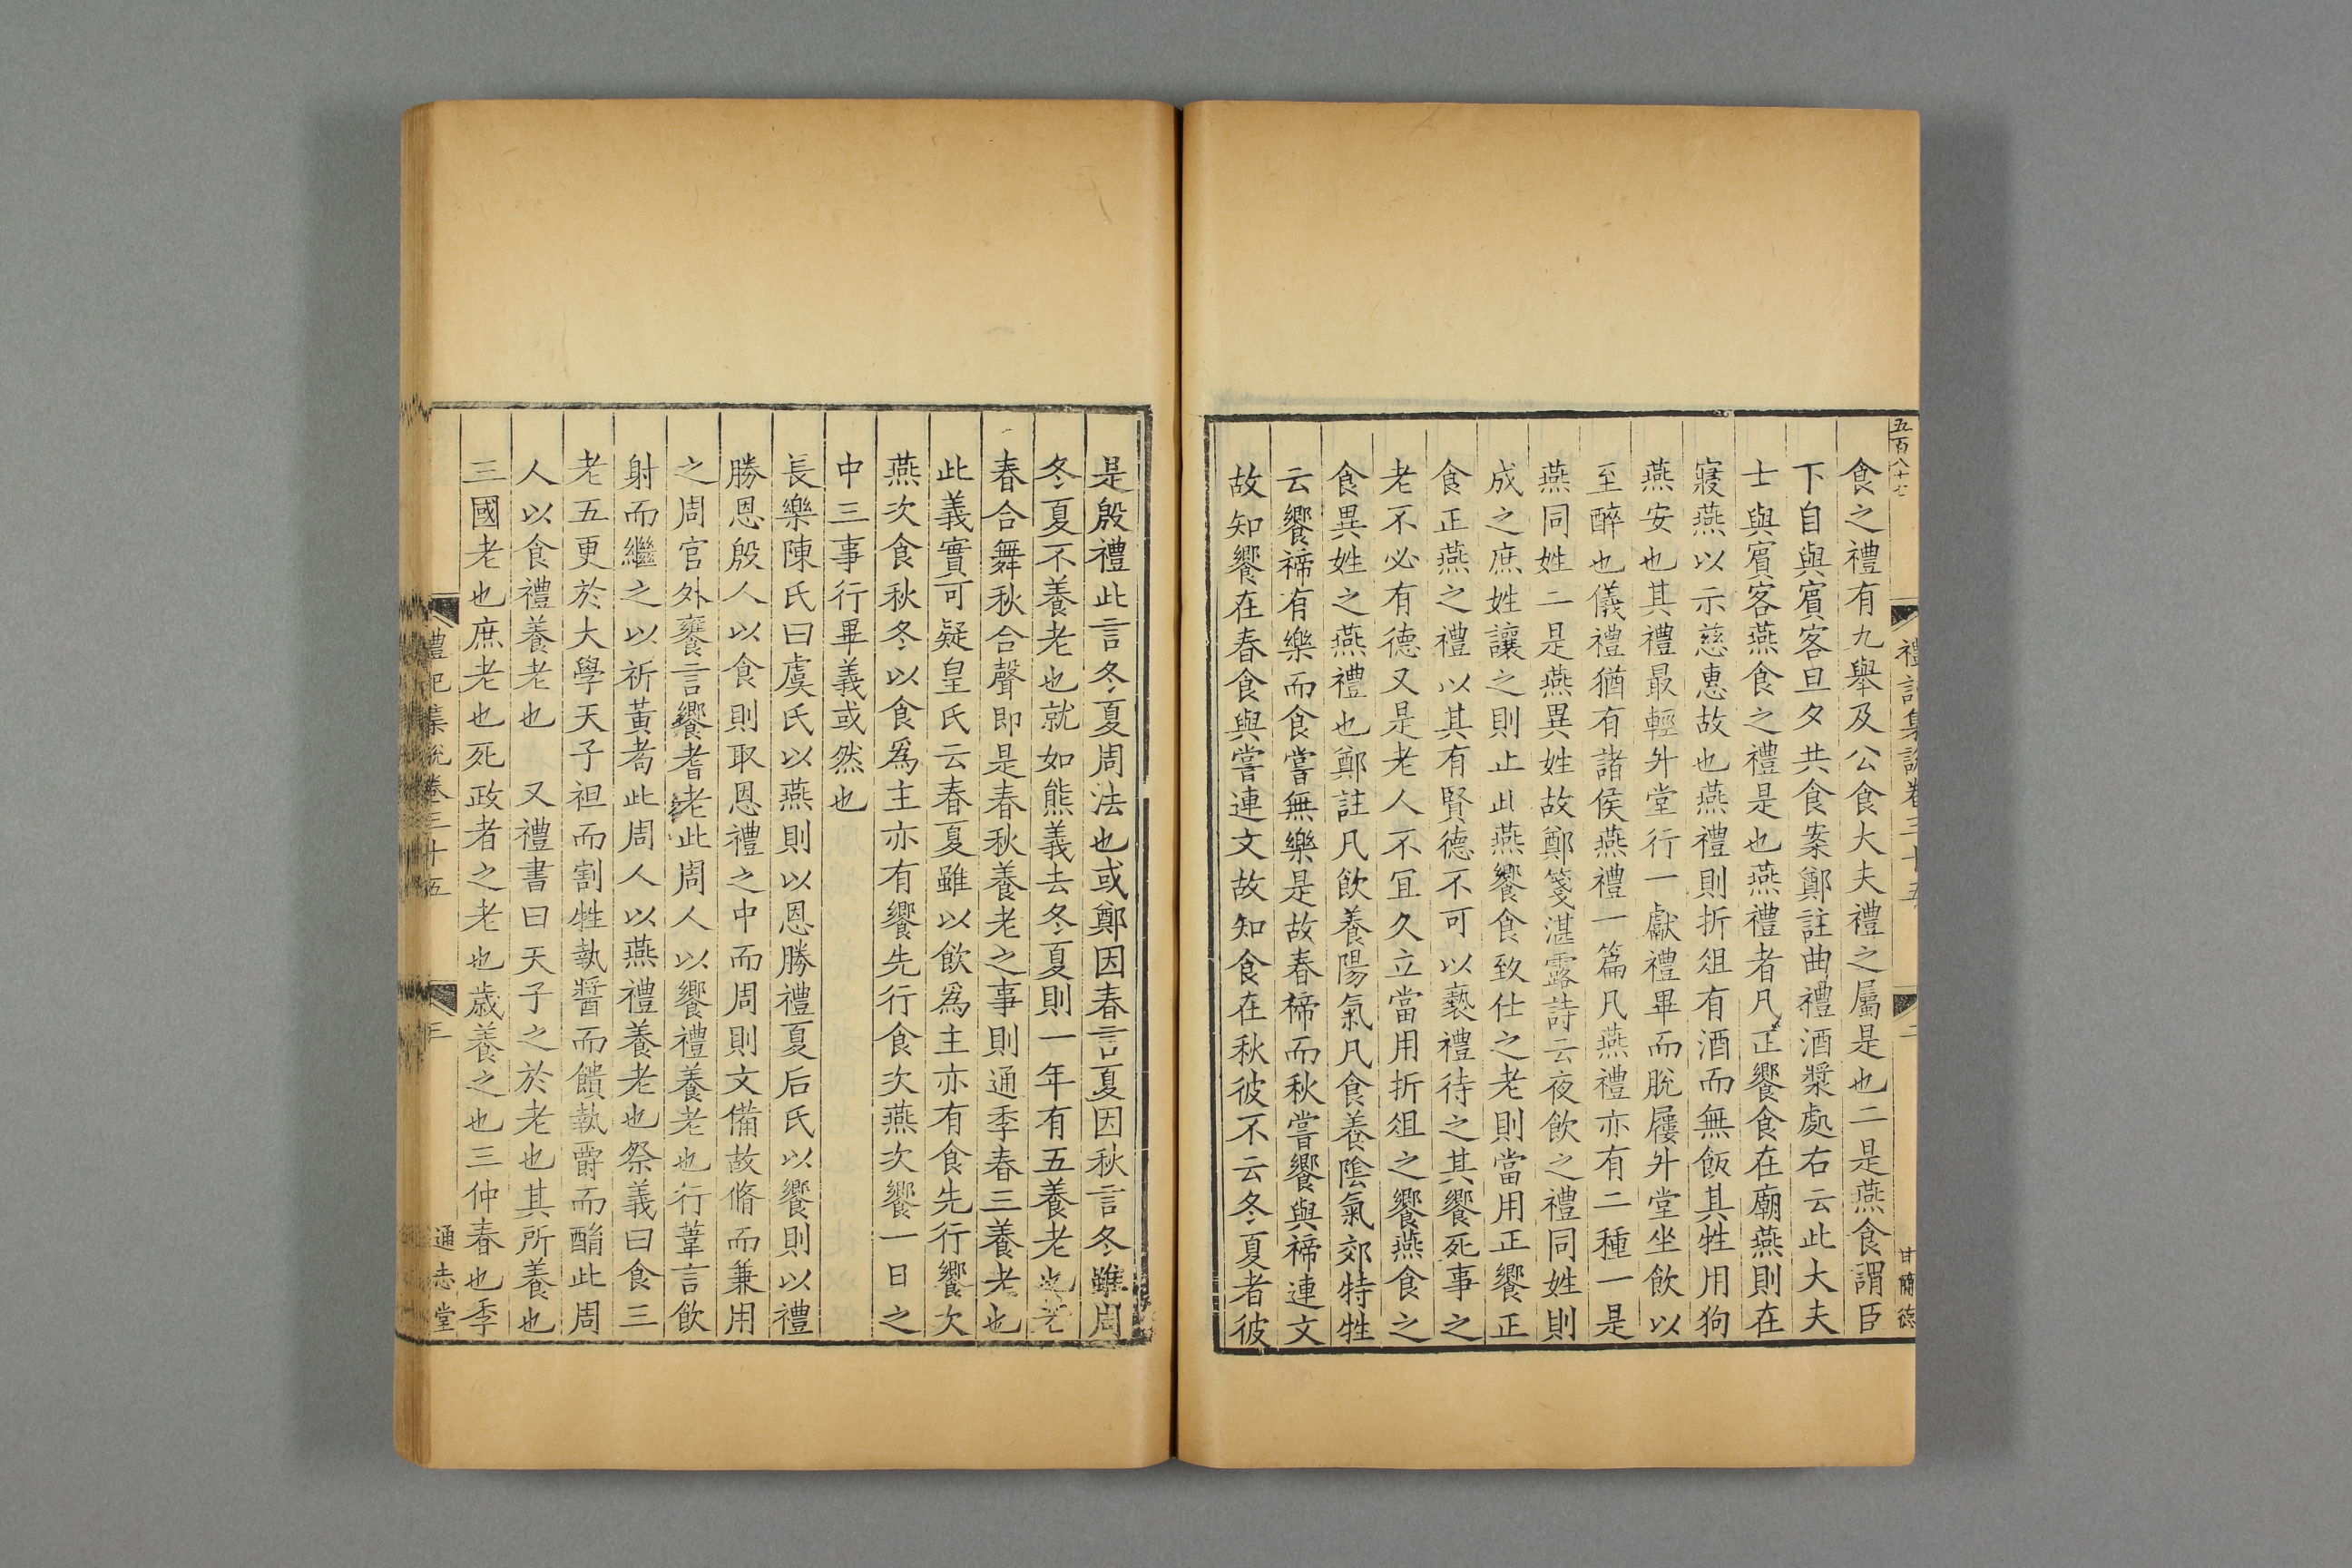 五百八十七
禮記集說卷三十五
二
甘簡德
食之禮有九舉及公食大夫禮之屬是也二是燕食謂臣
下自與賔客旦夕共食案鄭註曲禮酒漿處右云此大夫
士與賔客燕食之禮是也燕禮者凡正饗食在廟燕則在
寢燕以示慈惠故也燕禮則折俎有酒而無飯其牲用狗
燕安也其禮最輕升堂行一獻禮畢而脫屨升堂坐飲以
至醉也儀禮猶有諸侯燕禮一篇凡燕禮亦有二種一是
燕同姓二是燕異姓故鄭箋湛露詩云夜飲之禮同姓則
成之庶姓讓之則止此燕饗食致仕之老則當用正饗正
食正燕之禮以其有賢德不可以褻禮待之其饗死事之
老不必有德又是老人不宜久立當用折俎之饗燕食之
食異姓之燕禮也鄭註凡飲養陽氣凡食養陰氣郊特牲
云饗禘有樂而食嘗無樂是故春禘而秋嘗饗與禘連文
故知饗在春食與嘗連文故知食在秋彼不云冬夏者彼
是殷禮此言冬夏周法也或鄭因春言夏因秋言冬雖周
冬夏不養老也就如熊義去冬夏則一年有五養老也老
春合舞秋合聲即是春秋養老之事則通季春三養老也
此義實可疑皇氏云春夏雖以飲爲主亦有食先行饗次
燕次食秋冬以食爲主亦有饗先行食次燕次饗一日之
中三事行畢義或然也
長樂陳氏曰虞氏以燕則以恩勝禮夏后氏以饗則以禮
勝恩殷人以食則取恩禮之中而周則文備故脩而兼用
之周官外饔言饗耆老此周人以饗禮養老也行葦言飲
射而繼之以祈黃耇此周人以燕禮養老也祭義曰食三
老五更於大學天子袒而割牲執醬而饋執爵而酳此周
人以食禮養老也　又禮書曰天子之於老也其所養也
三國老也庶老也死政者之老也歲養之也三仲春也季
禮記集說卷三十五
三
通志堂